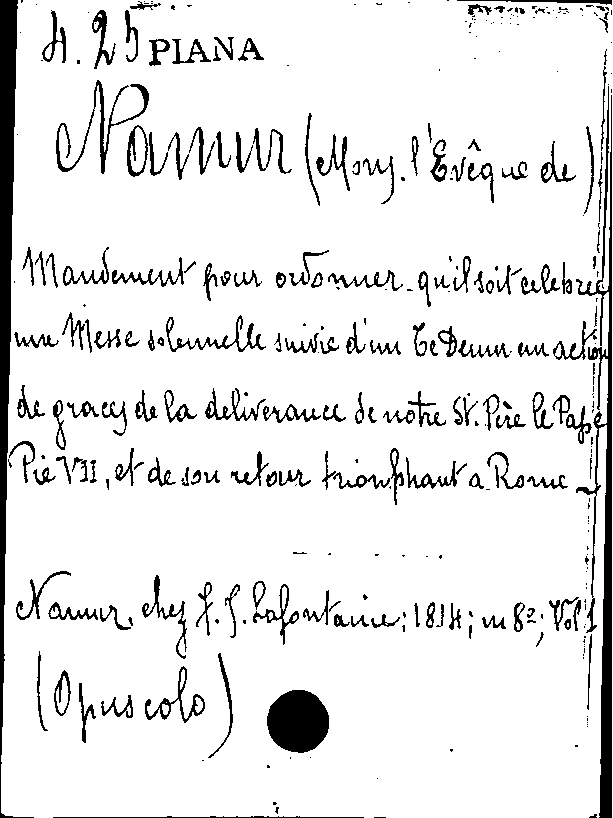 4.25 PIANA
Namur (Mons. l'Evêque de)
Mandement pour ordonner qu'il soit celebrée
une Messe solennelle suivie d'un Te Deum en action
de graces de la deliverance de notre St. Père le Pape
Pie VII, et de son retour trionphant a Rome
Namur, chez J. J. Lafontaine; 1814; in 8º; Vol 1
(Opuscolo)